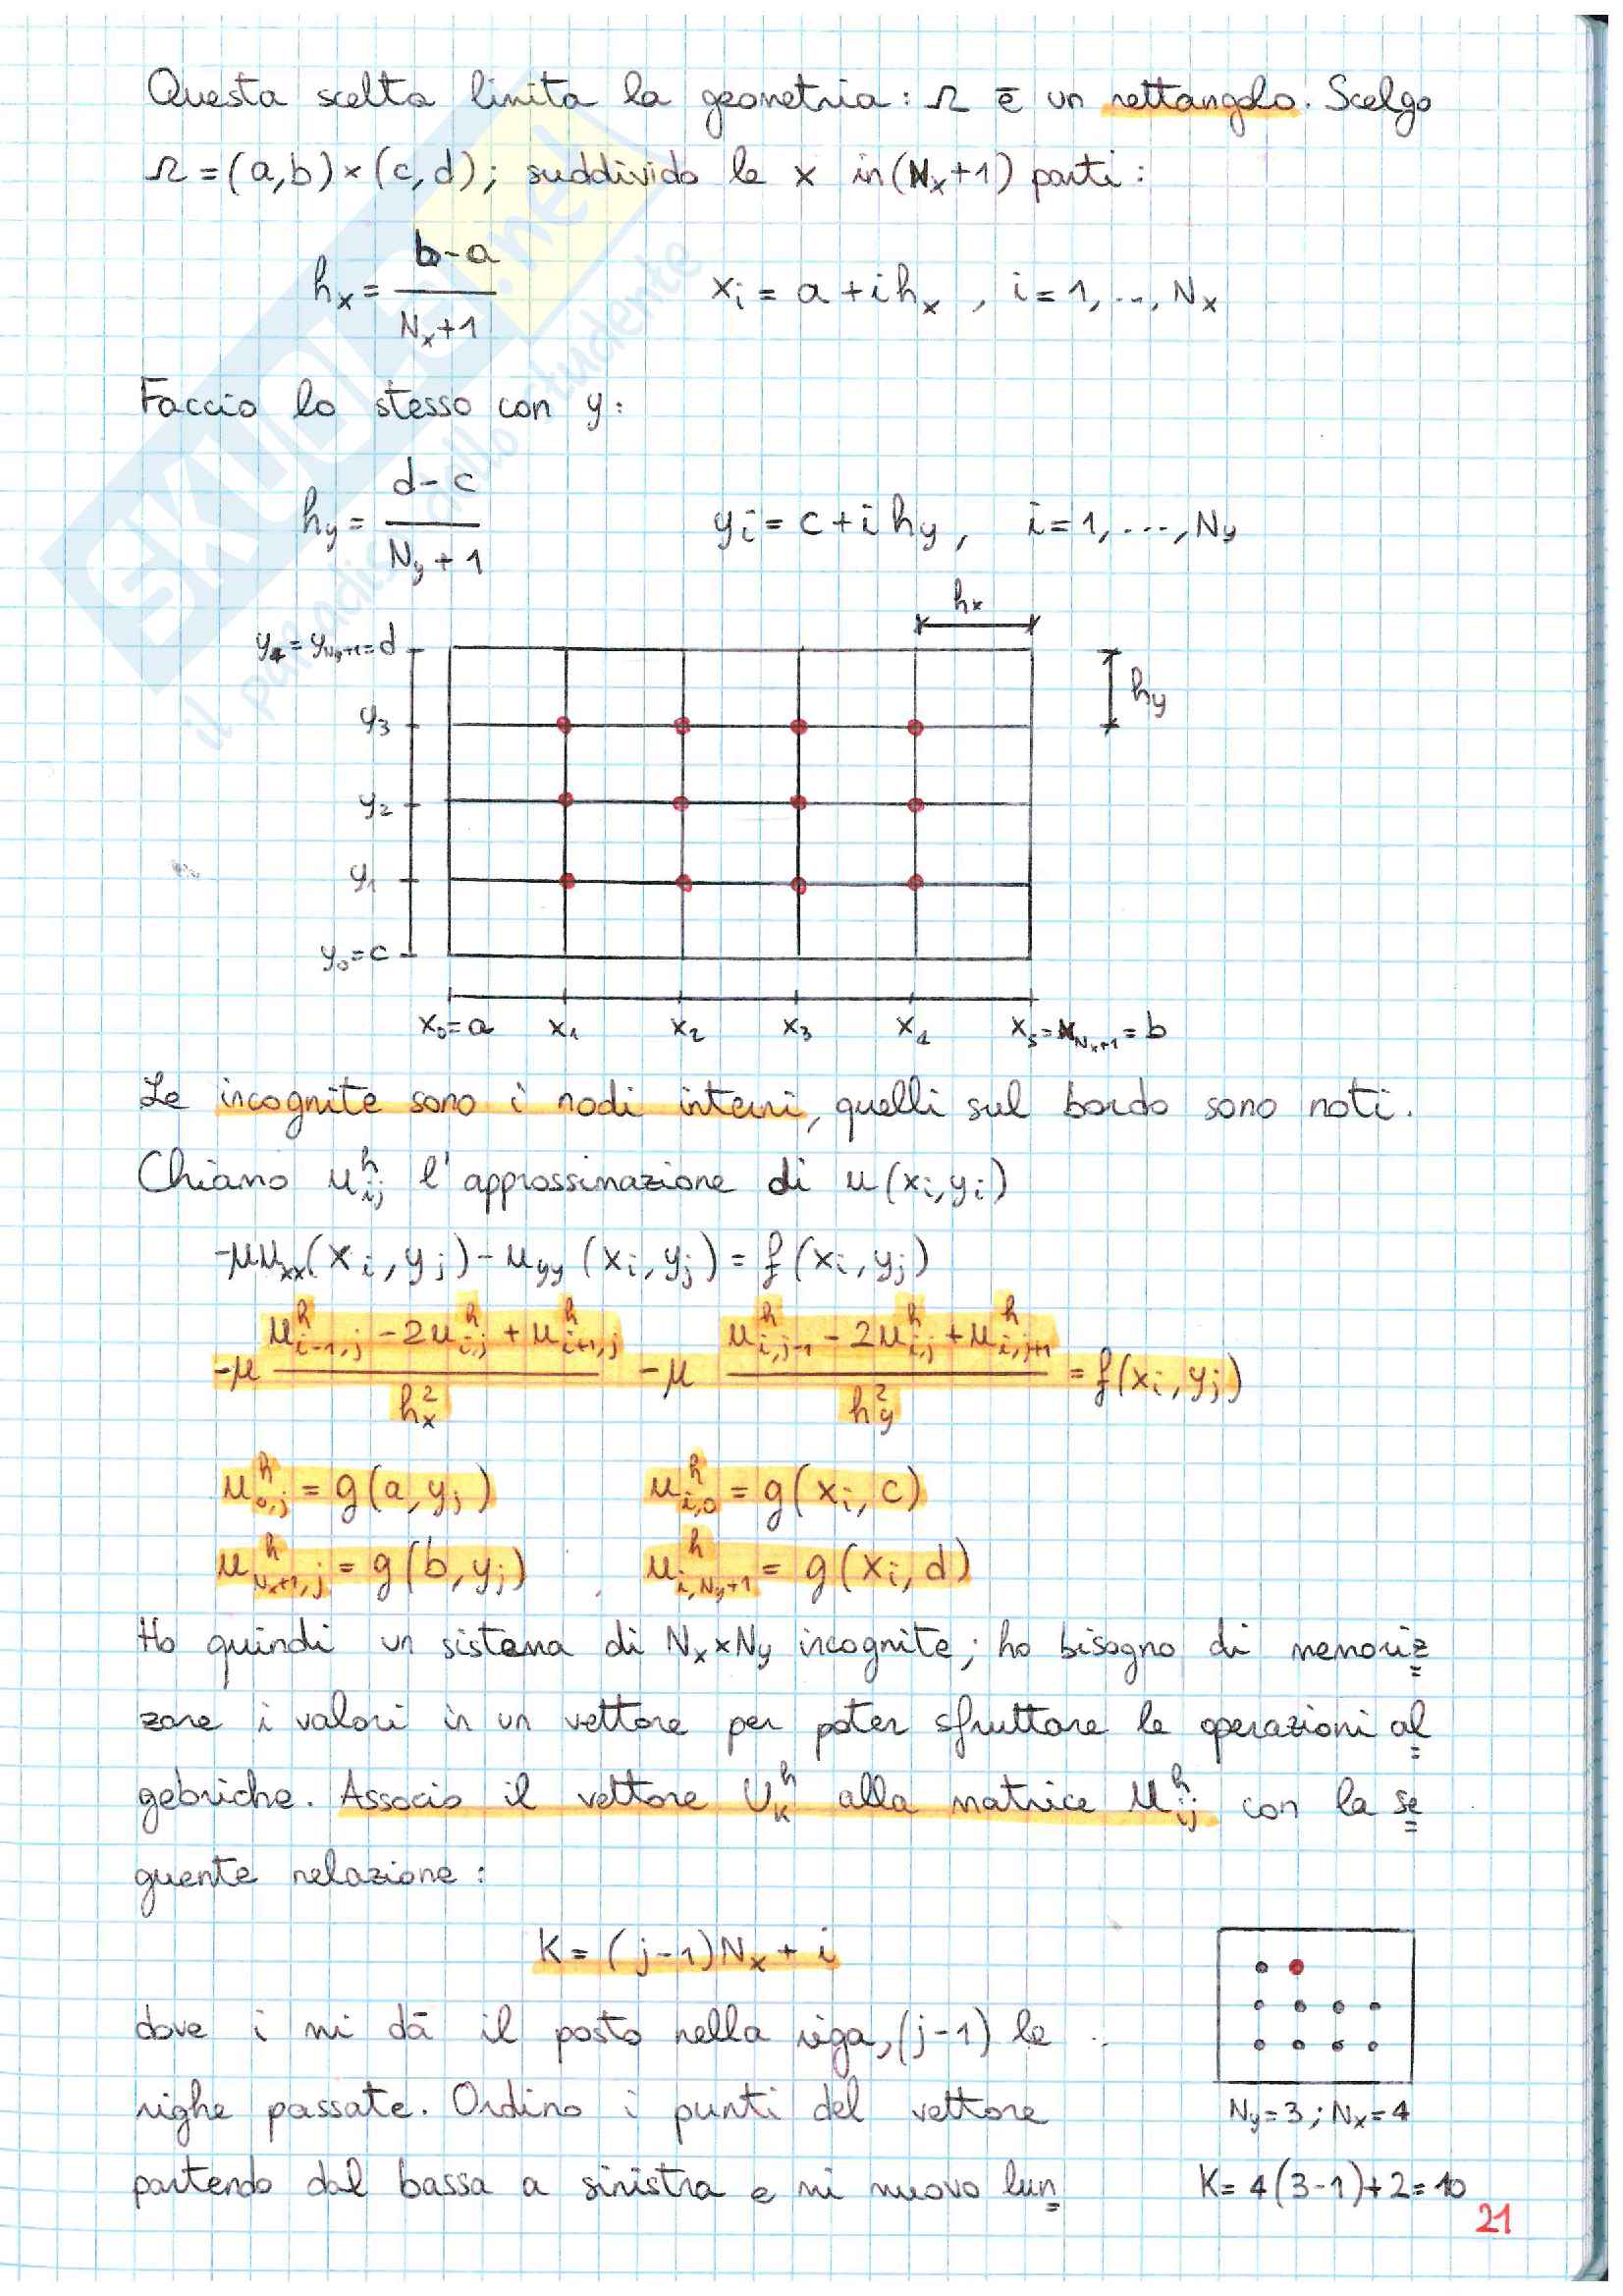 Questa scelta limita la geometria: Ω è un rettangolo. Scelgo
Ω = (a,b) × (c,d); suddivido le x in (Nx+1) parti:
hx = (b-a)/(Nx+1)    xi = a + i hx , i = 1, ..., Nx
Faccio lo stesso con y:
hy = (d-c)/(Ny+1)    yi = c + i hy, i = 1, ..., Ny
hx
y4 = yNy+1 = d
hy
y3
y2
y1
y0 = c
x0 = a    x1    x2    x3    x4    x5 = xNx+1 = b
Le incognite sono i nodi interni, quelli sul bordo sono noti.
Chiamo u^h_ij l'approssimazione di u(xi, yi)
-μuxx(xi, yj) - uyy(xi, yj) = f(xi, yj)
-μ (u^h_i-1,j - 2u^h_i,j + u^h_i+1,j)/h²x - μ (u^h_i,j-1 - 2u^h_i,j + u^h_i,j+1)/h²y = f(xi, yj)
u^h_0,j = g(a, yj)    u^h_i,0 = g(xi, c)
u^h_Nx+1,j = g(b, yj)    u^h_i,Ny+1 = g(xi, d)
Ho quindi un sistema di Nx × Ny incognite; ho bisogno di memoriz
zare i valori in un vettore per poter sfruttare le operazioni al
gebriche. Associo il vettore U^h_K alla matrice U^h_ij con la se
guente relazione:
K = (j-1)Nx + i
dove i mi dà il posto nella riga, (j-1) le
righe passate. Ordino i punti del vettore
partendo dal bassa a sinistra e mi muovo lun
Ny=3; Nx=4
K = 4(3-1)+2 = 10
21
SKUOLA.net
il paradiso dello studente